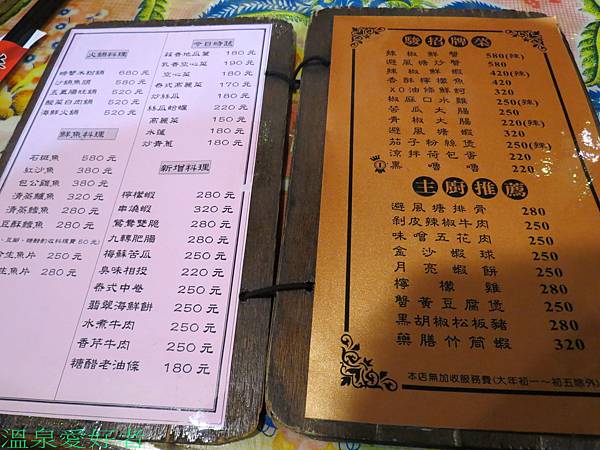 火鍋料理
螃蟹米粉鍋 680元
沙鍋魚頭 580元
五更腸旺鍋 520元
酸菜白肉鍋 520元
海鮮火鍋 520元
鮮魚料理
石斑魚 580元
紅沙魚 380元
包公魚 380元
清蒸鱸魚 320元
清蒸鱈魚 280元
豆酥鱈魚 280元
生魚片 250元
生魚片 280元
今日時蔬
蒜香地瓜葉 180元
乳香空心菜 190元
空心菜 180元
泰式高麗菜 170元
炒絲瓜 180元
絲瓜蛤蠣 220元
高麗菜 150元
水蓮 180元
炒青蔥 180元
新增料理
檸檬蝦 280元
串燒蝦 320元
鴛鴦雙脆 280元
九轉肥腸 280元
梅蘇苦瓜 250元
臭味相投 220元
泰式中卷 250元
翡翠海鮮餅 250元
水煮牛肉 250元
香芹牛肉 250元
糖醋老油條 180元
駿招牌菜
辣椒鮮蟹 580(辣)
避風塘炒蟹 580
辣椒鮮蝦 420(辣)
香酥檸檬魚 420
XO油條鮮蚵 320
椒麻口水雞 250(辣)
苦瓜大腸 250
青椒大腸 220(辣)
避風塘蝦 320
茄子粉絲煲 250(辣)
涼拌荷包蛋 220
黑嚕嚕 220
主廚推薦
避風塘排骨 280
剝皮辣椒牛肉 250
味噌五花肉 250
金沙蝦球 250
月亮蝦餅 250
檸檬雞 250
蟹黃豆腐煲 250
黑胡椒松板豬 280
藥膳竹筒蝦 320
本店無加收服務費(大年初一~初五除外)
溫泉愛好者